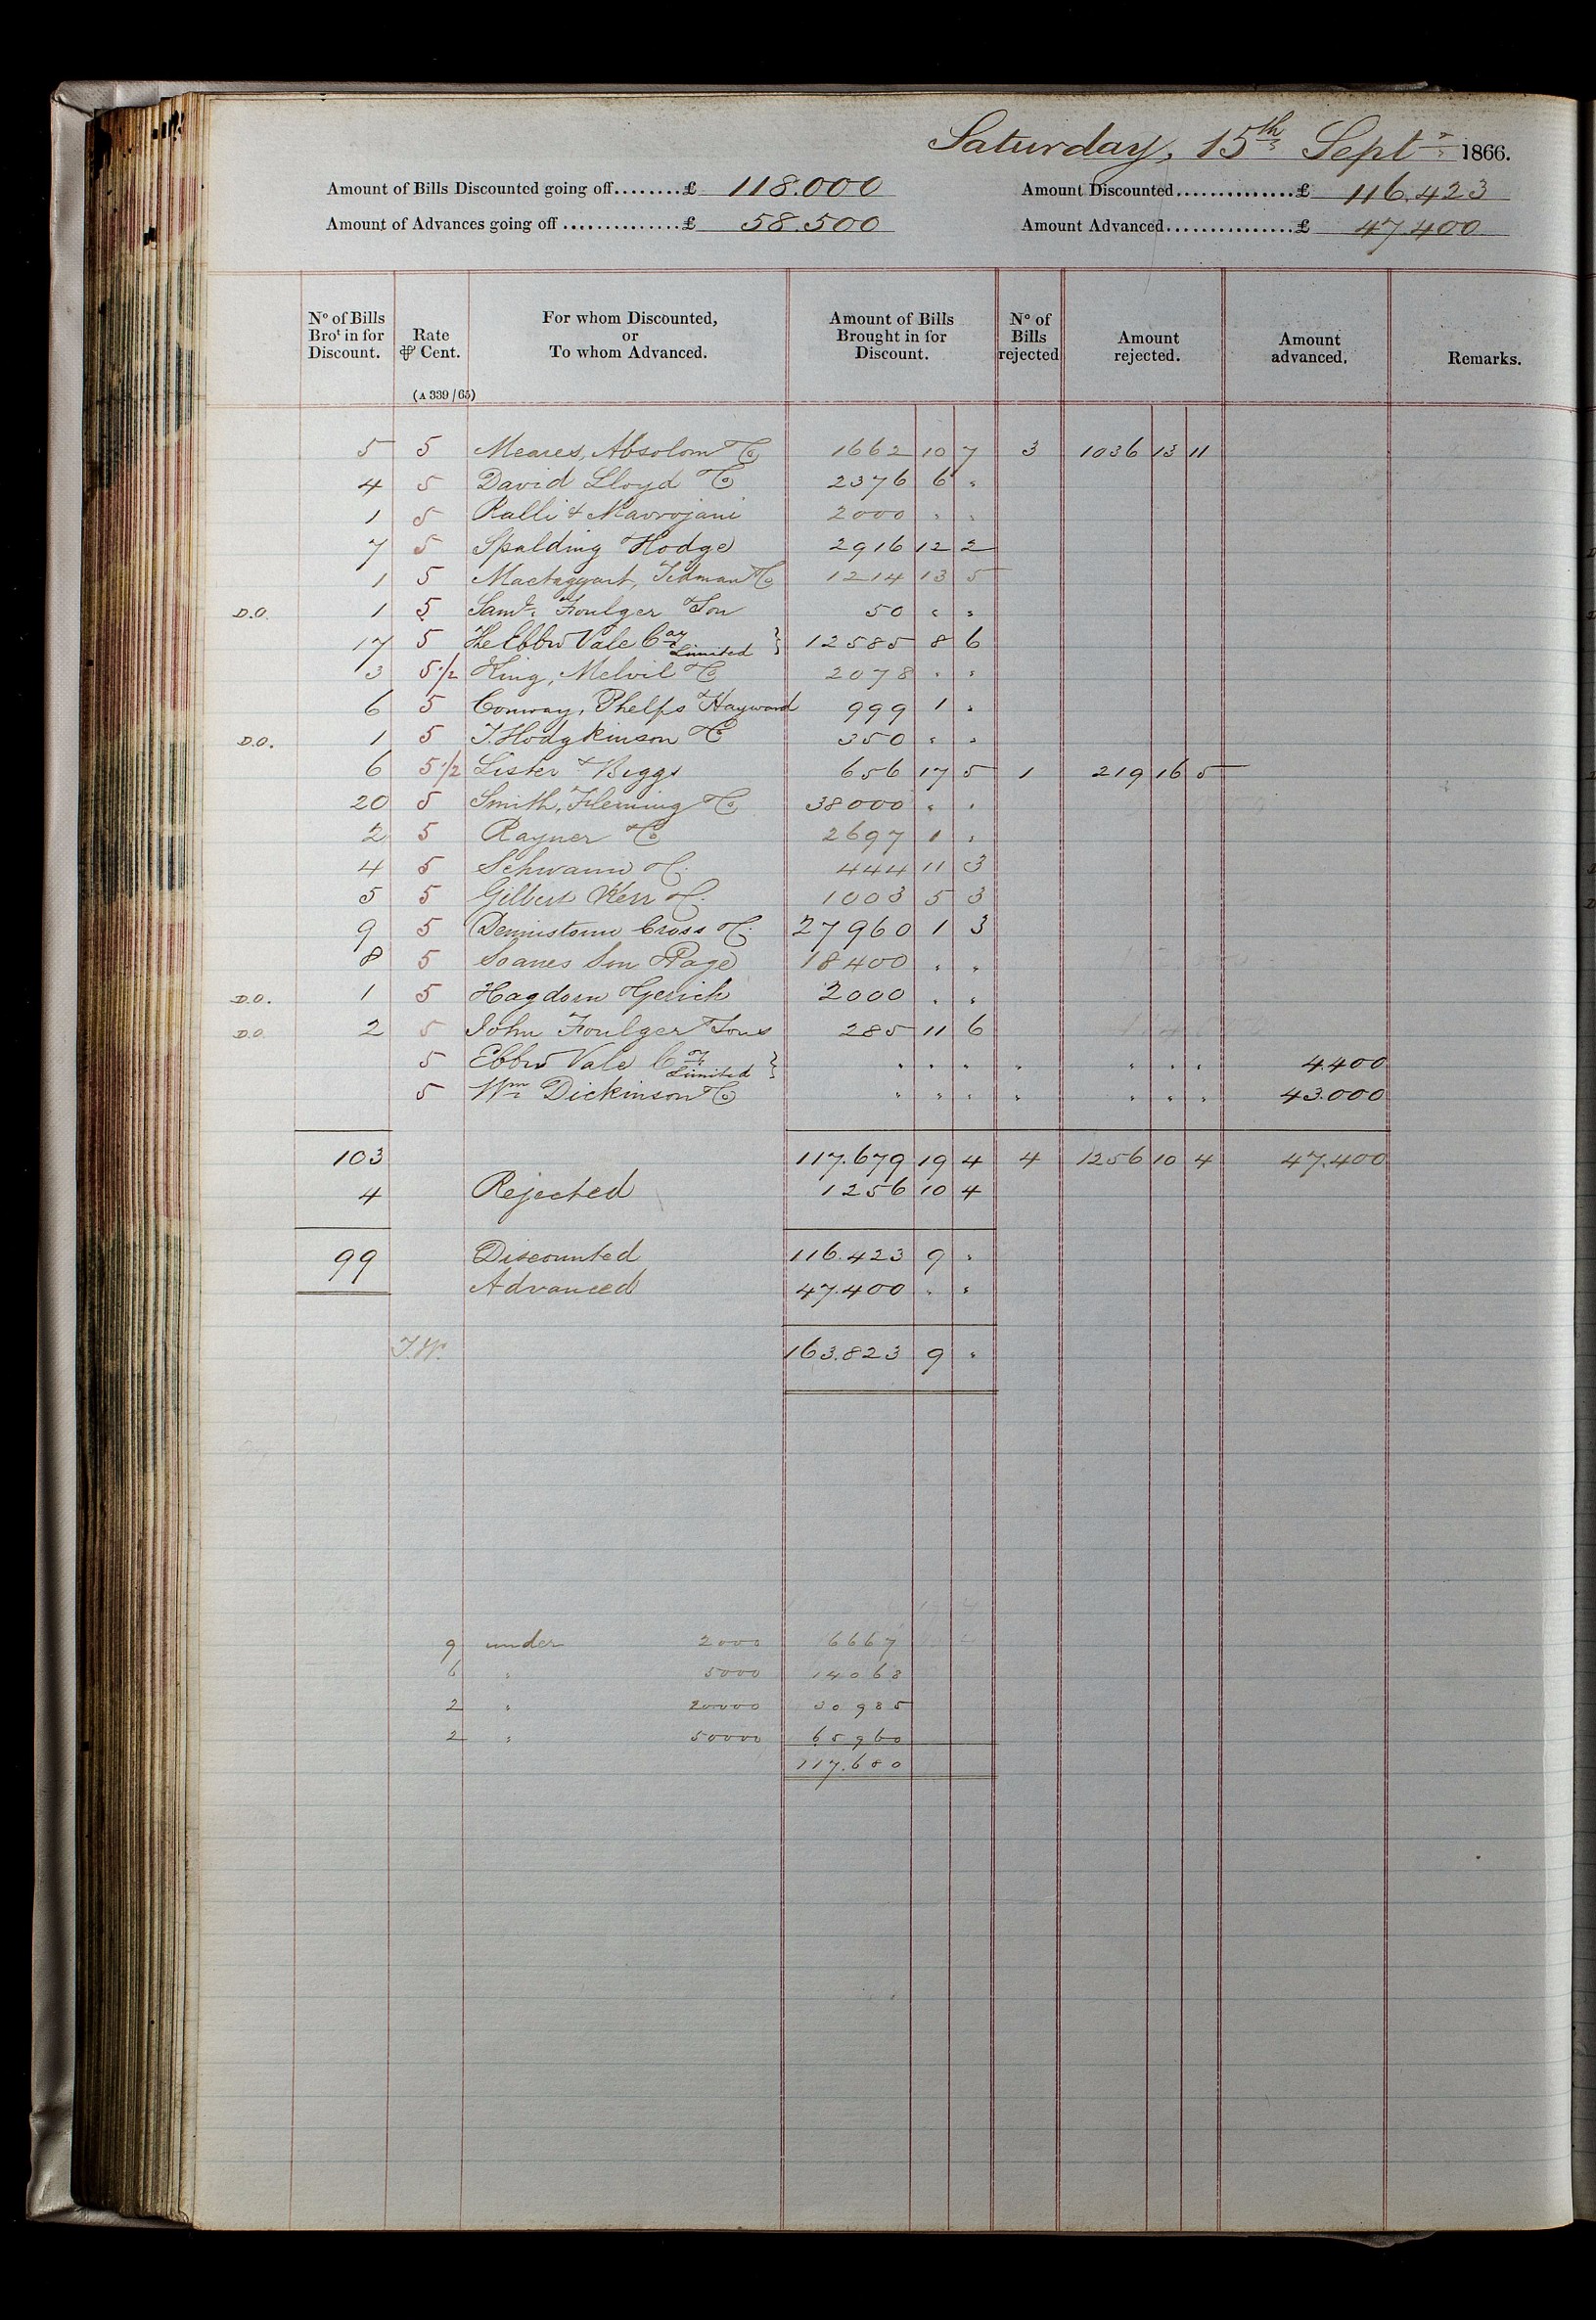 Saturday, 15th Septr 1866.
Amount of Bills Discounted going off........£ 118.000 Amount Discounted..............£ 116.423
Amount of Advances going off..............£ 58.500 Amount Advanced...............£ 47.400
No of Bills Brot in for Discount. Rate ⅌ Cent. (A 339/65) For whom Discounted, or To whom Advanced. Amount of Bills Brought in for Discount. No of Bills rejected Amount rejected. Amount advanced. Remarks.
5 5 Meares, Absolom & Co 1662 10 7 3 1036 13 11
4 5 David Lloyd & Co 2376 6 "
1 5 Ralli & Mavrojani 2000 " "
7 5 Spalding & Hodge 2916 12 2
1 5 Mactaggart, Tidman & Co 1214 13 5
D.O. 1 5 Saml. Foulger & Son 50 " "
17 5 The Ebbw Vale Coy Limited } 12585 8 6
3 5 1/2 King, Melvil & Co 2078 " "
6 5 Conway, Phelps & Hayward 999 1 "
D.O. 1 5 T. Hodgkinson & Co 350 " "
6 5 1/2 Lister & Biggs 656 17 5 1 219 16 5
20 5 Smith, Fleming & Co 38000 " "
2 5 Rayner & Co 2697 1 "
4 5 Schwann & Co. 444 11 3
5 5 Gilbert Kerr & Co. 1003 5 3
9 5 Dennistoun Cross & Co. 27960 1 3
8 5 Soanes Son & Page 18400 " "
D.O. 1 5 Hagdorn & Gerich 2000 " "
D.O. 2 5 John Foulger & Sons 285 11 6
5 Ebbw Vale Coy Limited } " " " " " " " 4.400
5 Wm Dickinson & Co " " " " " " " 43.000
103 117.679 19 4 4 1256 10 4 47.400
4 Rejected 1256 10 4
99 Discounted 116.423 9 "
Advanced 47.400 " "
T.W. 163.823 9 "
9 under 2000 6667
6 " 5000 14068
2 " 20000 30985
2 " 50000 65960
117.680